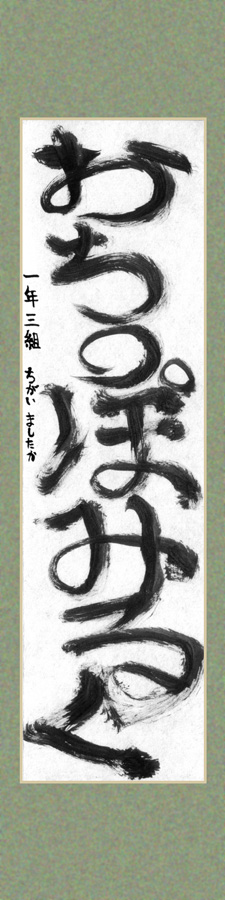 おちっぽみるく
一年三組 ちがい ましたか